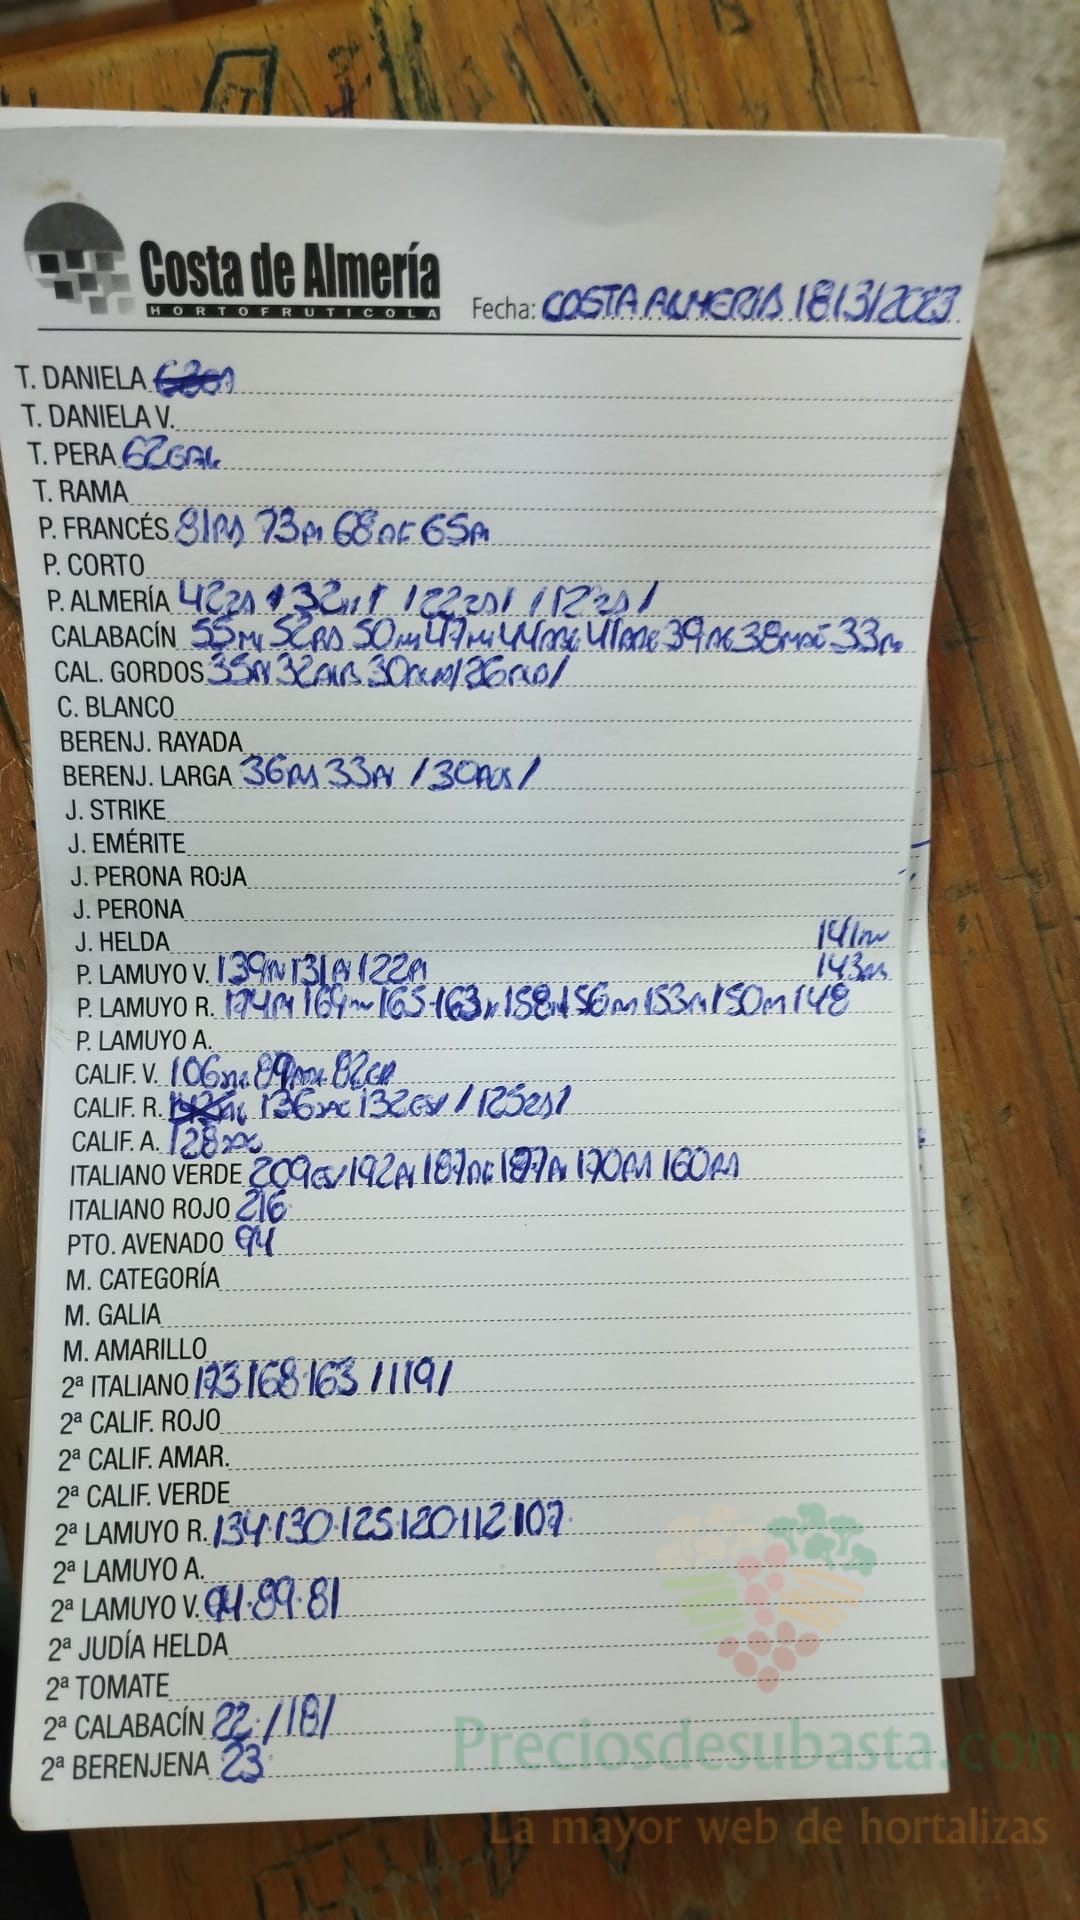 Costa de Almería
HORTOFRUTICOLA
Fecha: COSTA ALMERIA 18/3/2023
T. DANIELA
T. DANIELA V.
T. PERA 62GAL
T. RAMA
P. FRANCÉS 81 73 68 65
P. CORTO
P. ALMERÍA 42 32 /22 / /12 /
CALABACÍN 55 52 50 47 44 41 39 38 33
CAL. GORDOS 35 32 30 /26 /
C. BLANCO
BERENJ. RAYADA
BERENJ. LARGA 36 33 /30 /
J. STRIKE
J. EMÉRITE
J. PERONA ROJA
J. PERONA
J. HELDA 141
P. LAMUYO V. 139 131 122 143
P. LAMUYO R. 174 169 165 163 158 156 153 150 148
P. LAMUYO A.
CALIF. V. 106 89 82
CALIF. R. 136 132 /125 /
CALIF. A. 128
ITALIANO VERDE 209 192 187 187 170 160
ITALIANO ROJO 216
PTO. AVENADO 94
M. CATEGORÍA
M. GALIA
M. AMARILLO
2ª ITALIANO 173·168·163 /119/
2ª CALIF. ROJO
2ª CALIF. AMAR.
2ª CALIF. VERDE
2ª LAMUYO R. 134·130·125·120·112·107
2ª LAMUYO A.
2ª LAMUYO V. 94·89·81
2ª JUDÍA HELDA
2ª TOMATE
2ª CALABACÍN 22·/18/
2ª BERENJENA 23
Preciosdesubasta.com
La mayor web de hortalizas